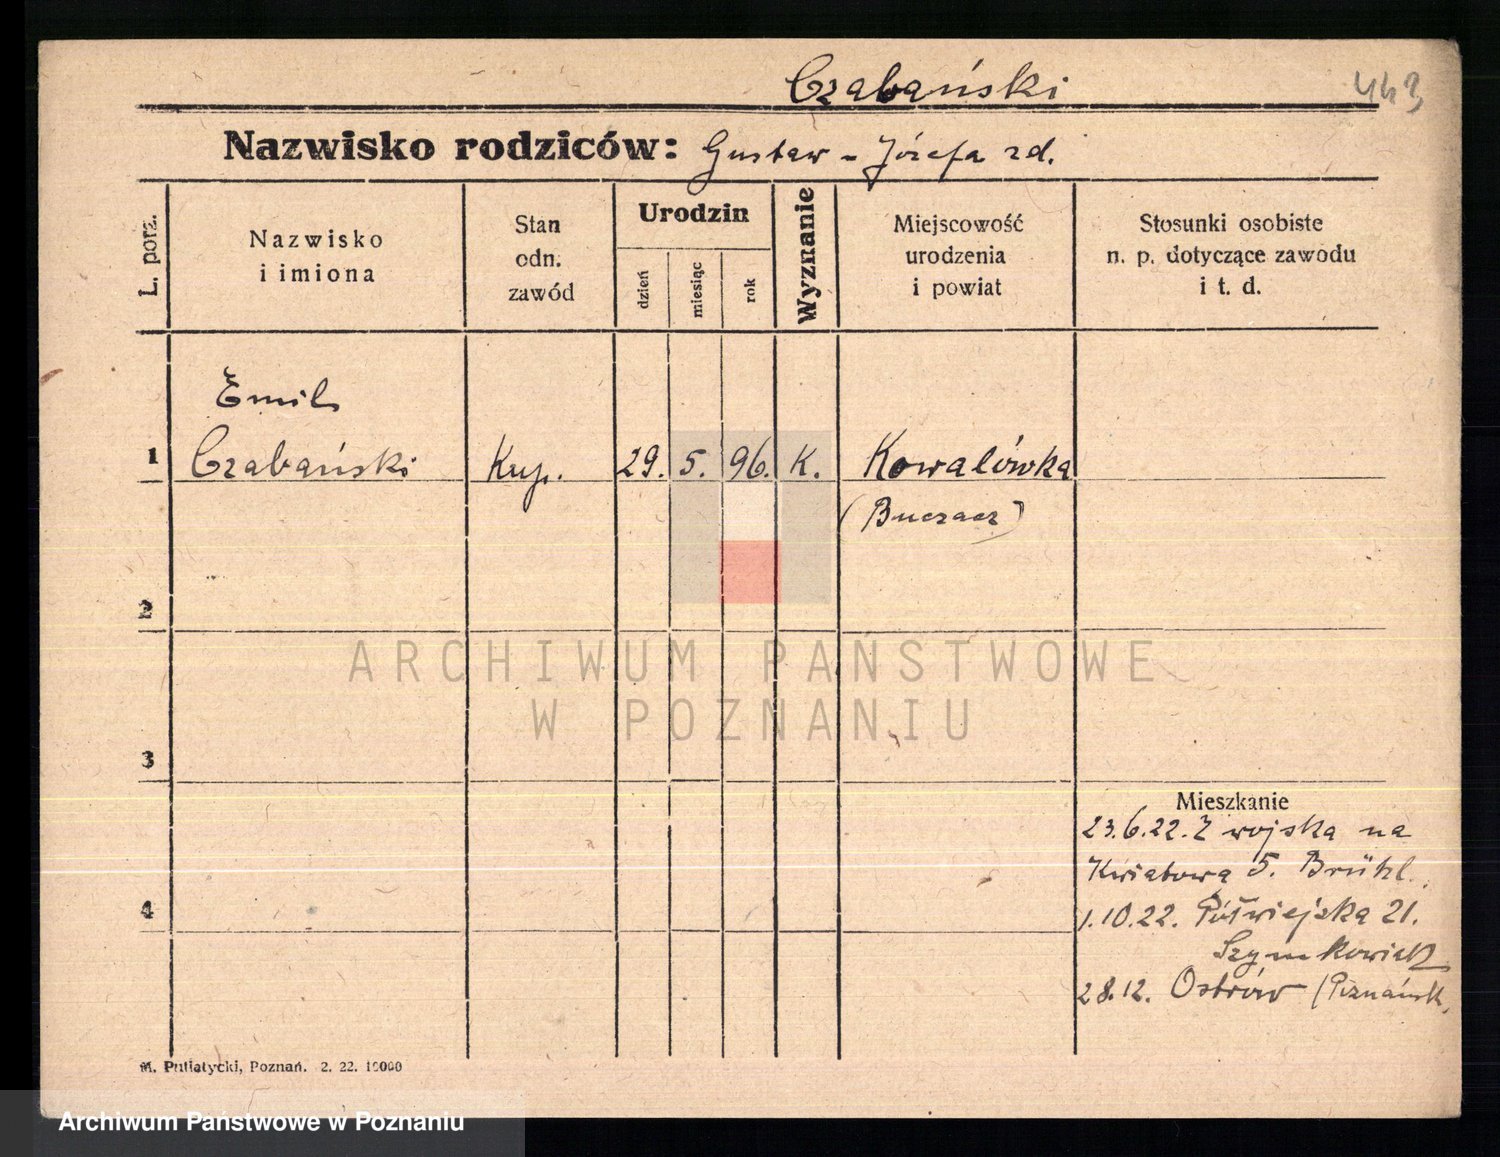 Czabański 443
Nazwisko rodziców: Gustaw - Józefa zd.
L. porz.
Nazwisko
i imiona
Stan
odn.
zawód
Urodzin
dzień
miesiąc
rok
Wyznanie
Miejscowość
urodzenia
i powiat
Stosunki osobiste
n. p. dotyczące zawodu
i t. d.
Emil
1 Czabański Kup. 29. 5. 96. K. Kowalówka
(Buczacz)
2
3
4
Mieszkanie
23.6.22. Z wojska na
Kwiatową 5. Brühl.
1.10.22. Półwiejska 21.
Szymkowiak
28.12. Ostrów (Poznańsk.
M. Putiatycki, Poznań. 2. 22. 10000
ARCHIWUM PAŃSTWOWE
W POZNANIU
Archiwum Państwowe w Poznaniu